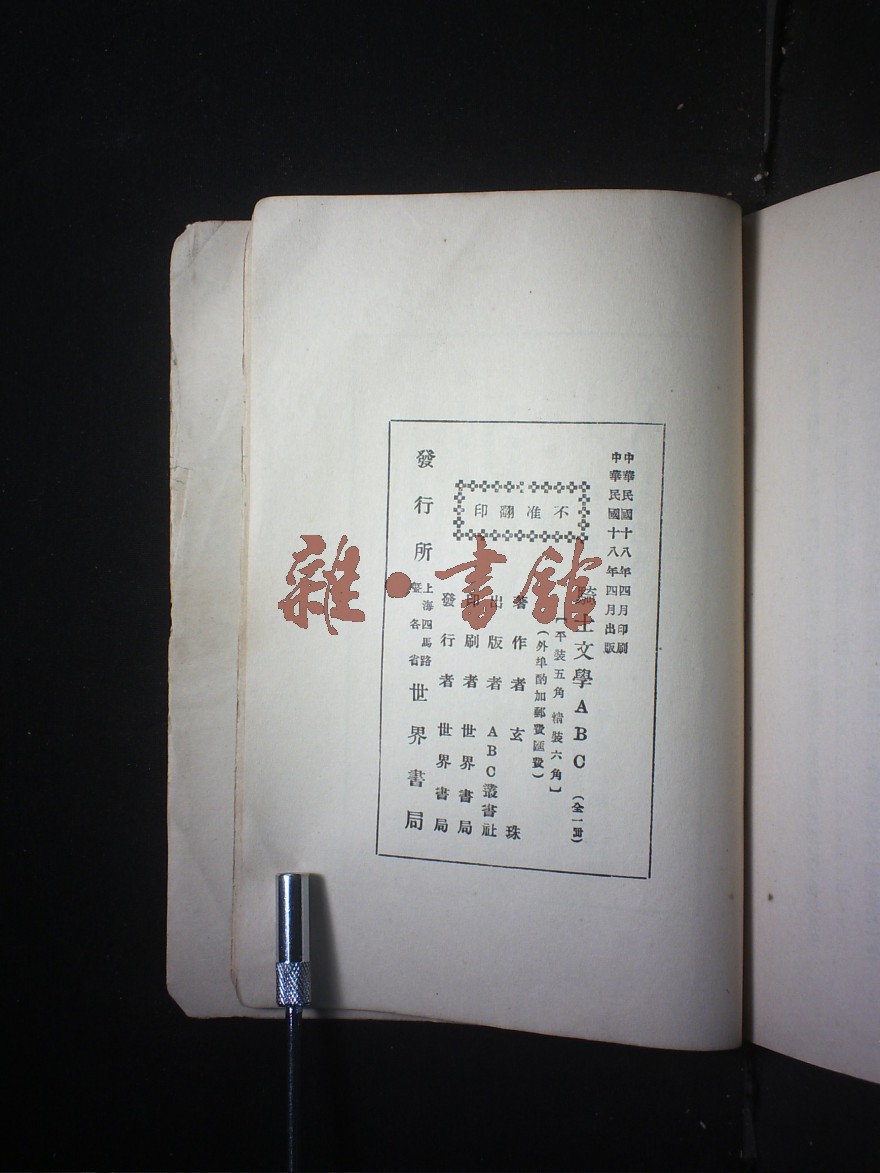 中華民國十八年四月印刷
中華民國十八年四月出版
騎士文學ABC（全一冊）
【平裝五角 精裝六角】
（外埠酌加郵費匯費）
不准翻印
著作者 玄珠
出版者 ABC叢書社
印刷者 世界書局
發行者 世界書局
發行所 上海四馬路暨各省 世界書局
雜·書館